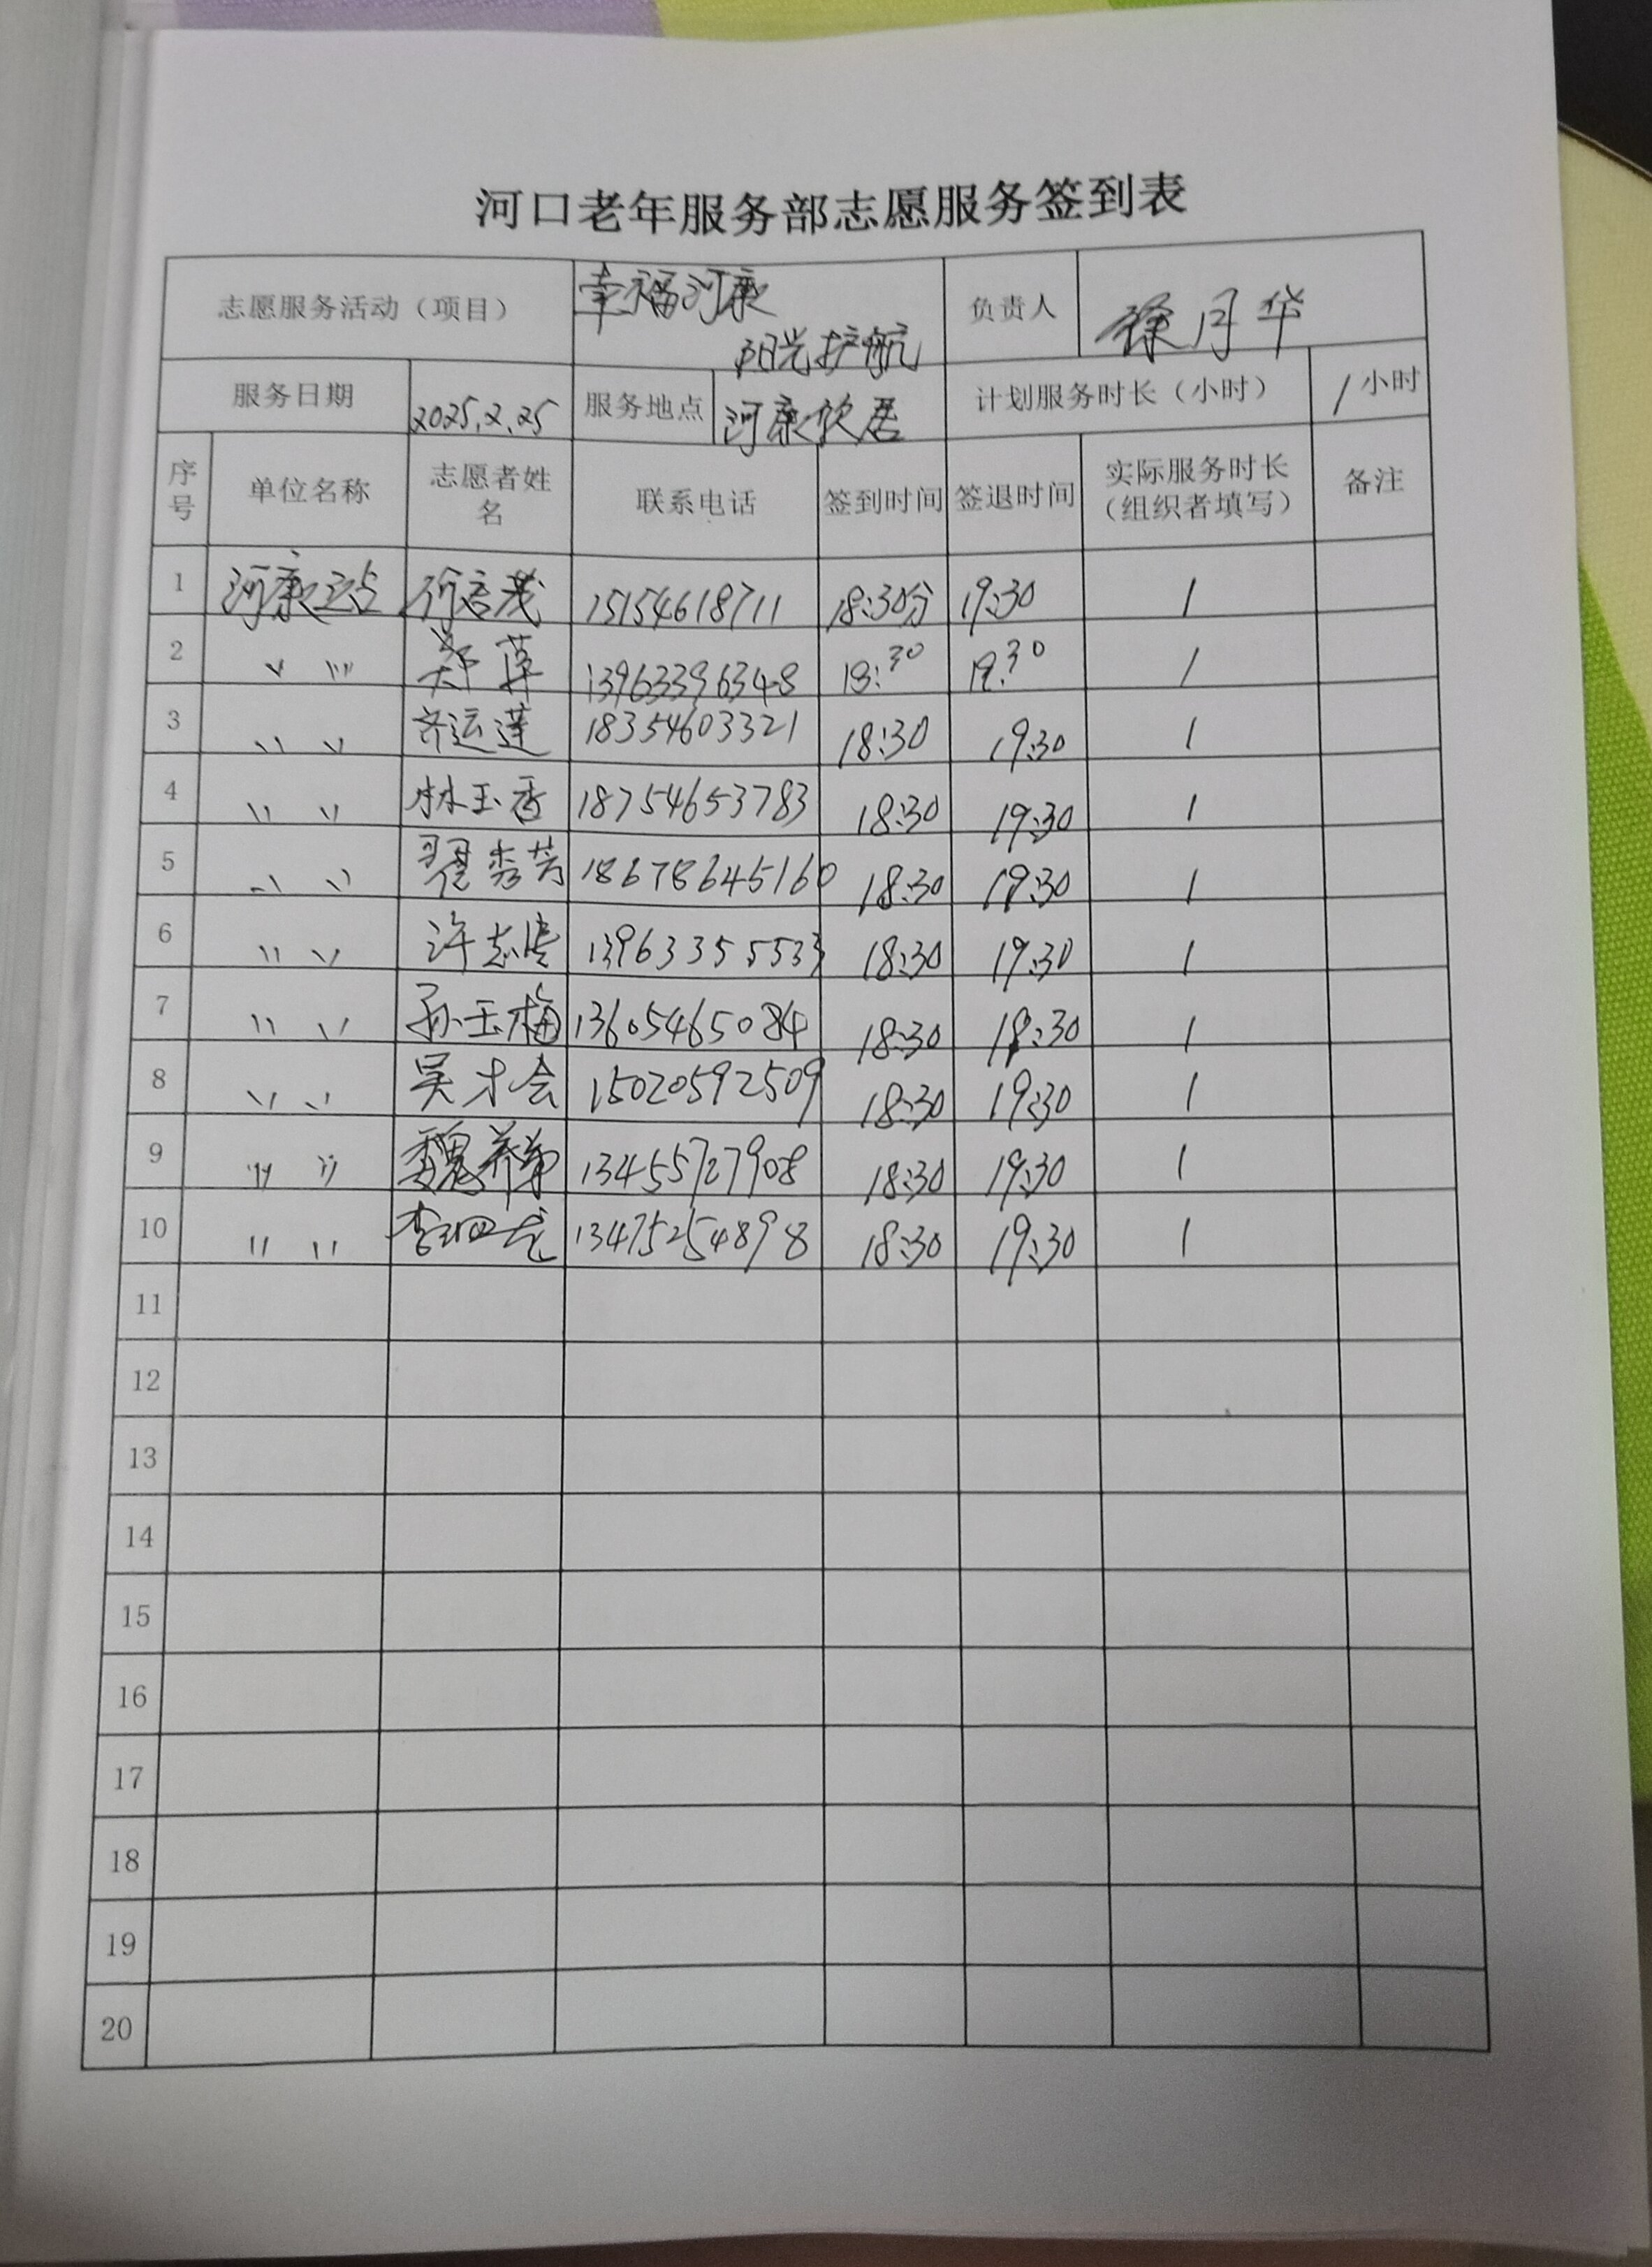 河口老年服务部志愿服务签到表
志愿服务活动（项目） 幸福河康 负责人 徐月华
阳光护航
服务日期 2025.2.25 服务地点 河康 计划服务时长（小时） 1小时
序号 单位名称 志愿者姓名 联系电话 签到时间 签退时间 实际服务时长（组织者填写） 备注
1 河康站 15154618711 18:30分 19:30 1
2 〃 〃 郑萍 13963396348 18:30 19:30 1
3 〃 〃 齐运莲 18354603321 18:30 19:30 1
4 〃 〃 林玉香 18754653783 18:30 19:30 1
5 〃 〃 翟秀芳 18678645160 18:30 19:30 1
6 〃 〃 许志 13963355533 18:30 19:30 1
7 〃 〃 孙玉梅 13605465084 18:30 18:30 1
8 〃 〃 吴才会 15020592509 18:30 19:30 1
9 〃 〃 魏 13455727908 18:30 19:30 1
10 〃 〃 李 13475254898 18:30 19:30 1
11
12
13
14
15
16
17
18
19
20